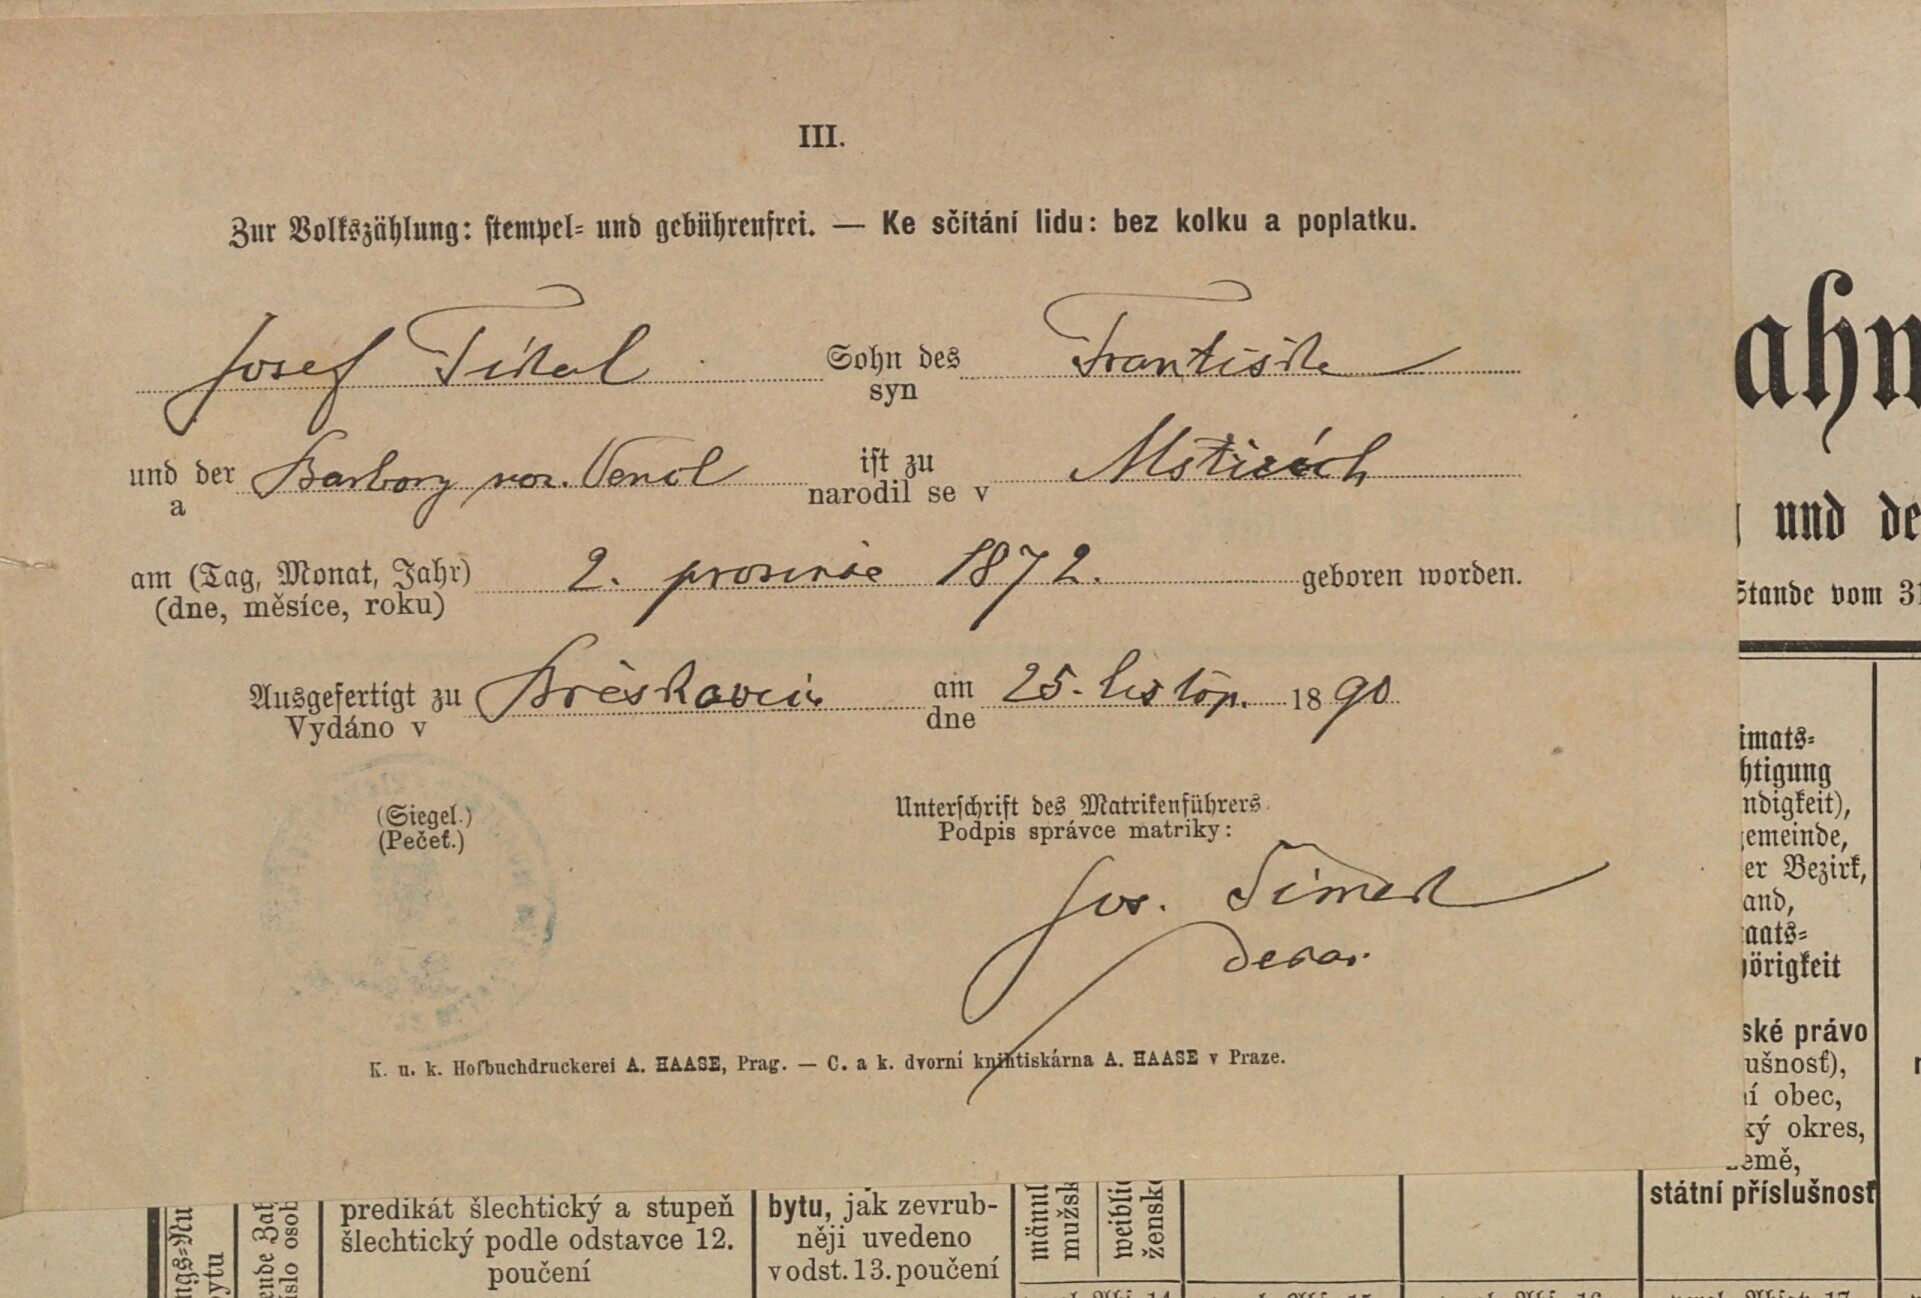 III.
Zur Volkszählung: stempel- und gebührenfrei. — Ke sčítání lidu: bez kolku a poplatku.
Josef Tikal Sohn des Františka
syn
und der Barbory roz. Vencl ist zu Msticích
a narodil se v
am (Tag, Monat, Jahr) 2. prosince 1872. geboren worden.
(dne, měsíce, roku)
Ausgefertigt zu Břéskovcích am 25. listop. 1890
Vydáno v dne
(Siegel.) Unterschrift des Matrikenführers
(Pečeť.) Podpis správce matriky:
Jos. Šimek
K. u. k. Hofbuchdruckerei A. HAASE, Prag. — C. a k. dvorní knihtiskárna A. HAASE v Praze.
ahn
und de
Stande vom 31
imats-
htigung
ndigkeit),
gemeinde,
er Bezirk,
and,
aats-
hörigkeit
ské právo
ušnosť),
ní obec,
ký okres,
země,
státní příslušnosť
predikát šlechtický a stupeň
šlechtický podle odstavce 12.
poučení
bytu, jak zevrub-
něji uvedeno
v odst. 13. poučení
männl
mužsk
weiblic
žensk